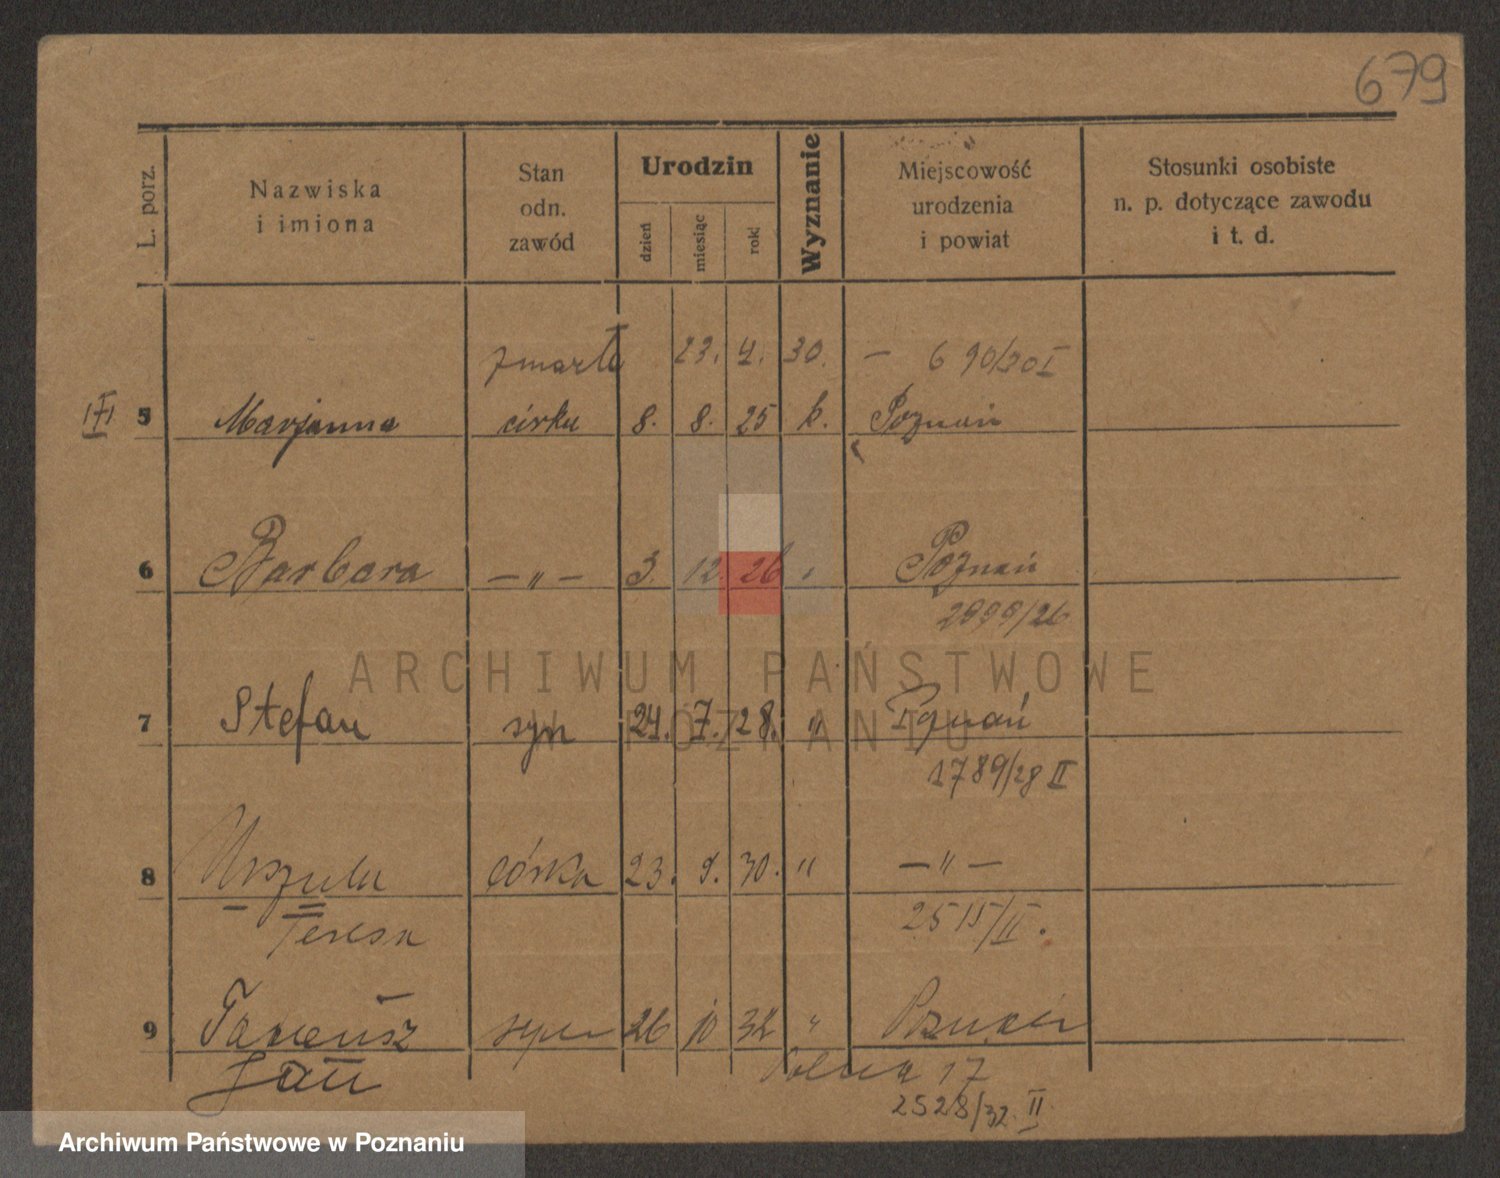 679
L. porz.
Nazwiska
i imiona
Stan
odn.
zawód
Urodzin
dzień
miesiąc
rok
Wyznanie
Miejscowość
urodzenia
i powiat
Stosunki osobiste
n. p. dotyczące zawodu
i t. d.
zmarła 23. 4. 30. — 690/30 I
5 Marjanna córka 8. 8. 25 k. Poznań
6 Barbara — „ — 3. 12. 26 „ Poznań
2999/26
ARCHIWUM PAŃSTWOWE
W POZNANIU
7 Stefan syn 24. 7. 28. „ Poznań
1789/28 II
8 Urszula córka 23. 9. 30. „ — „ —
Teresa 2515/II.
9 Tadeusz syn 26 10 32 „ Poznań
Jan Polna 17
2528/32. II
Archiwum Państwowe w Poznaniu